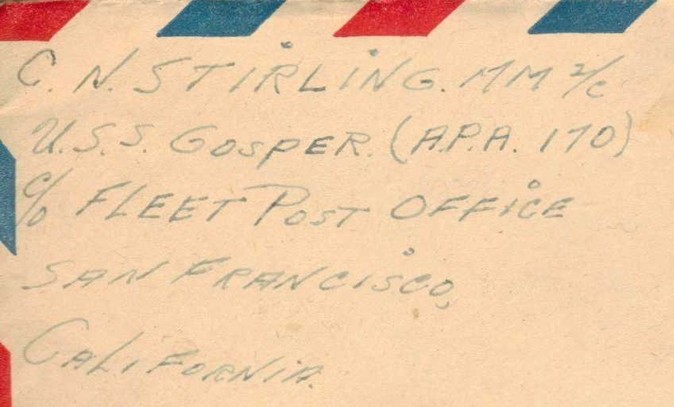 C. N. STIRLING. MM 2/c
U.S.S. GOSPER. (A.P.A. 170)
c/o FLEET POST OFFICE
SAN FRANCISCO,
CALIFORNIA.